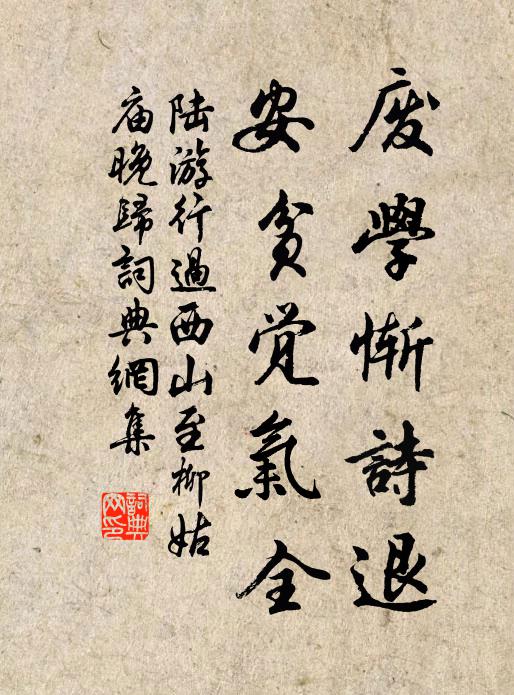 废學慚詩退
安貧覺氣全
陆游行過西山至柳姑
庙晚歸詞典網集
詞典網印